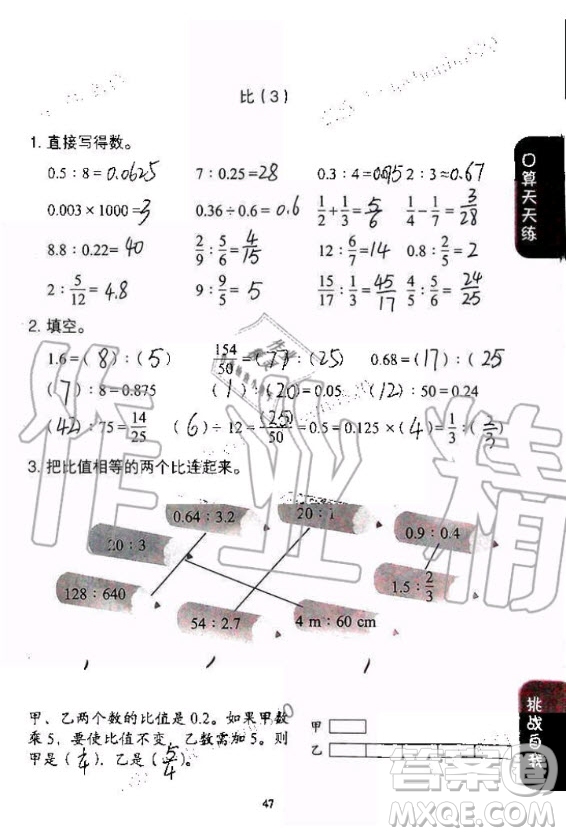 比（3）
1. 直接写得数。
0.5：8＝0.0625 7：0.25＝28 0.3：4＝0.075 2：3＝0.67
0.003×1000＝3 0.36÷0.6＝0.6 1/2＋1/3＝5/6 1/4－1/7＝3/28
8.8：0.22＝40 2/9：5/6＝4/15 12：6/7＝14 0.8：2/5＝2
2：5/12＝4.8 9：9/5＝5 15/17：1/3＝45/17 4/5：5/6＝24/25
2. 填空。
1.6＝（8）：（5） 154/50＝（77）：（25） 0.68＝（17）：（25
（7）：8＝0.875 （1）：（20）＝0.05 （12）：50＝0.24
（42）：75＝14/25 （6）÷12＝（25）/50＝0.5＝0.125×（4）＝1/3：（2/3）
3. 把比值相等的两个比连起来。
0.64：3.2 20：1
20：3 0.9：0.4
128：640 1.5：2/3
54：2.7 4 m：60 cm
甲、乙两个数的比值是0.2。如果甲数
乘5，要使比值不变，乙数需加5。则
甲是（1/4），乙是（5/4）。
甲
乙
口算天天练
挑战自我
47
作业精
答案圈
MXQE.COM